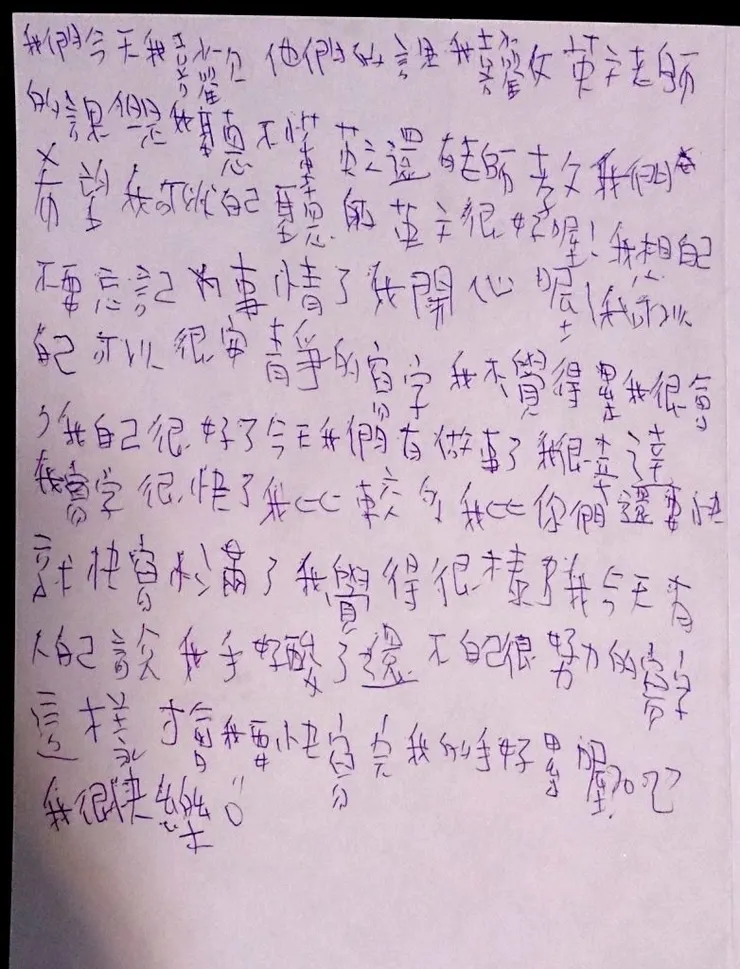 我們今天我喜歡 他們的課我喜歡女英文老師
的課但是我聽不懂英文還有老師教我們
希望我可以自己聽的英文很好喔！我想自己
不要忘記的事情了我開心喔！我可以
自己可以很安靜的寫字我不覺得累我很會
我自己很好了今天我們有做事了我很幸
我寫字很快了我比較多我比你們還要快
就快寫滿了我覺得很棒了我今天有
自己說我手好酸了還不自己很努力的寫字
這樣才會我要快寫完我的手好累喔
我很快樂